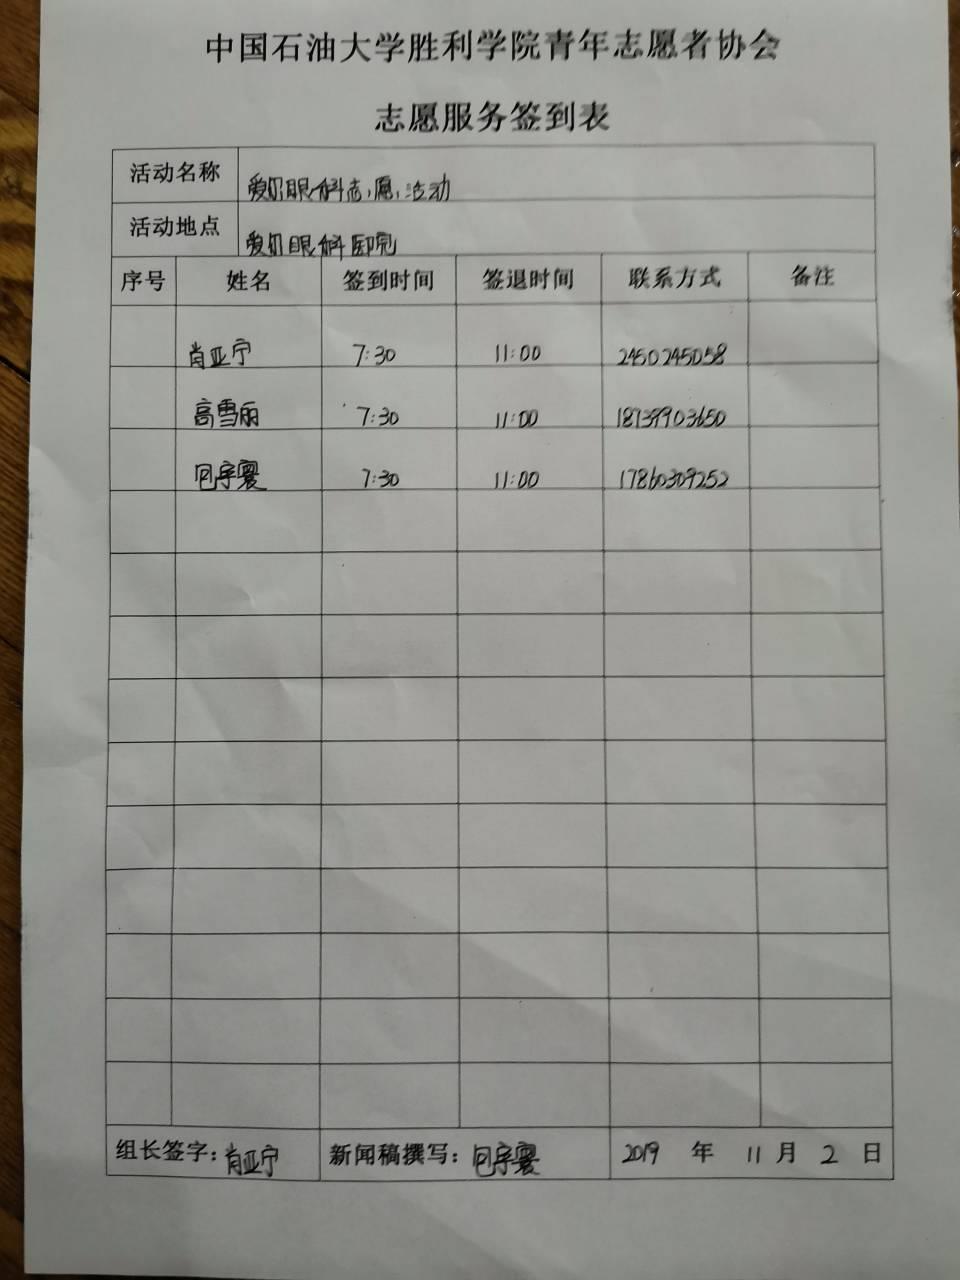 中国石油大学胜利学院青年志愿者协会
志愿服务签到表
活动名称 爱尔眼科志愿活动
活动地点 爱尔眼科医院
序号 姓名 签到时间 签退时间 联系方式 备注
肖亚宁 7:30 11:00 2450245058
高雪丽 7:30 11:00 18739903650
7:30 11:00 17860309252
组长签字：肖亚宁 新闻稿撰写： 2019 年 11 月 2 日